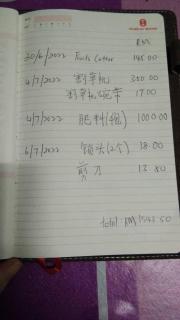 RM
30/6/2022 Fruits Cutter 145.00
4/7/2022 割草机 350.00
割草机绳带 17.00
4/7/2022 肥料(包) 1000.00
6/7/2022 锄头(2个) 18.00
剪刀 13.50
total: RM 1543.50